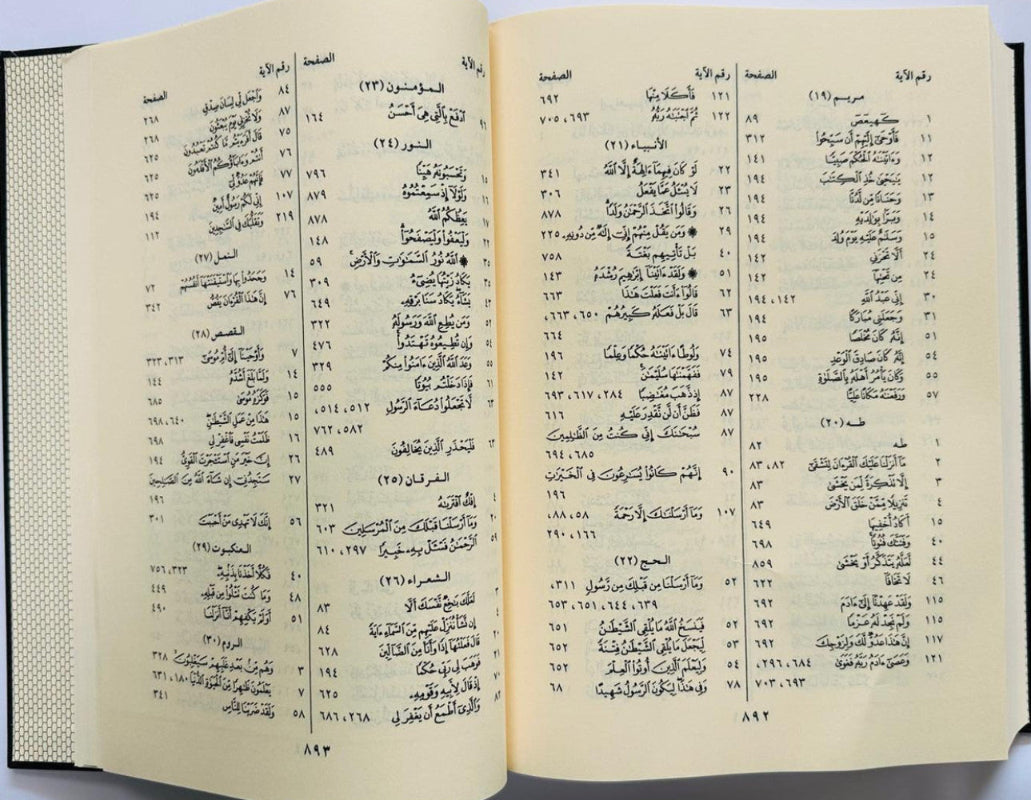 رقم الآية الصفحة
مريم (١٩)
١ كهيعص ٨٩
١١ فأوحى إليهم أن سبحوا ٣١٢
١٢ وءاتيناه الحكم صبيا ١٤١
١٢ ييحيى خذ الكتب ١٩٤
١٣ وحنانا من لدنا ١٩٤
١٤ وبرا بوالديه ١٩٤
١٥ وسلم عليه يوم ولد ١٩٤
٢٤ ألا تحزني ١٤٢
٢٤ من تحتها ١٤٢
٣٠ إني عبد الله ١٤٢، ١٩٤
٣١ وجعلني مباركا ١٩٤
٥١ إنه كان مخلصا ١٩٥
٥٤ إنه كان صادق الوعد ١٩٥
٥٥ وكان يأمر أهله بالصلوة ١٩٥
٥٧ ورفعنه مكانا عليا ٢٢٨
طه (٢٠)
١ طه ٨٢
٢ ما أنزلنا عليك القرءان لتشقى ٨٢، ٨٣
٣ إلا تذكرة لمن يخشى ٨٣
٤ تنزيلا ممن خلق الأرض ٨٣
١٥ أكاد أخفيها ٦٤٩
٤٠ وفتنك فتونا ٦٩٨
٤٤ لعله يتذكر أو يخشى ٨٥٩
٤٦ لا تخافا ٦٢٢
١١٥ ولقد عهدنا إلى ءادم ٦٩٢
١١٥ ولم نجد له عزما ٦٩٢
١١٧ إن هذا عدو لك ولزوجك ٦٩٣
١٢١ وعصى ءادم ربه فغوى ٢٩٦، ٦٨٤،
٦٩٣، ٧٠٣
رقم الآية الصفحة
١٢١ فأكلا منها ٦٩٢
١٢٢ ثم اجتبه ربه ٦٩٣، ٧٠٥
الأنبياء (٢١)
٢٢ لو كان فيهما ءالهة إلا الله ٣٤١
٢٣ لا يسئل عما يفعل ٣٠٦
٢٦ وقالوا اتخذ الرحمن ولدا ٨٧٨
٢٩ ۞ ومن يقل منهم إني إله من دونه ٢٢٥
٤٠ بل تأتيهم بغتة ٧٥٨
٥١ ۞ ولقد ءاتينا إبرهيم رشده ١٤٣
٦٢ قالوا ءأنت فعلت هذا ٦٦٣
٦٣ قال بل فعله كبيرهم ٦٥٠، ٦٦٣،
٦٦٤
٧٤ ولوطا ءاتينه حكما وعلما ١٩٦
٧٩ ففهمنها سليمن ١٤٢
٨٧ إذ ذهب مغضبا ٢٨٧، ٦١٧، ٦٩٣
٨٧ فظن أن لن نقدر عليه ٦١٦
٨٧ سبحنك إني كنت من الظلمين
٦٨٥، ٦٩٤
٩٠ إنهم كانوا يسرعون في الخيرت
١٩٦
١٠٧ وما أرسلنك إلا رحمة ٥٨، ٨٨،
١٦٦، ٢٩٠
الحج (٢٢)
٥٢ وما أرسلنا من قبلك من رسول ٣١١،
٦٣٩، ٦٤٤، ٦٥١، ٦٥٣
٥٢ فينسخ الله ما يلقي الشيطن ٦٥١
٥٣ ليجعل ما يلقي الشيطن فتنة ٦٥٢
٥٤ وليعلم الذين أوتوا العلم ٦٥٢
٧٨ وفي هذا ليكون الرسول شهيدا ٦٨
٨٩٢
رقم الآية الصفحة
المؤمنون (٢٣)
٩٦ ادفع بالتي هي أحسن ١٦٤
النور (٢٤)
١٥ وتحسبونه هينا ٧٩٦
١٦ ولولا إذ سمعتموه ٨٧٩
١٧ يعظكم الله ٨٧٨
٢٢ وليعفوا وليصفحوا ١٤٨
٣٥ ۞ الله نور السموت والأرض ٥٩
٣٥ يكاد زيتها يضيء ٣٠٩
٤٣ يكاد سنا برقه ٦٤٩
٥٢ ومن يطع الله ورسوله ٣٢٢
٥٤ وإن تطيعوه تهتدوا ٤٧٦
٥٥ وعد الله الذين ءامنوا منكم ٣٢٩
٦١ فإذا دخلتم بيوتا ٥٥٥
٦٣ لا تجعلوا دعاء الرسول ٥١٢، ٥١٤،
٥٨٢، ٧٦٢
٦٣ فليحذر الذين يخالفون ٤٨٩
الفرقان (٢٥)
٤ إفك افتره ٣٢١
٢٠ وما أرسلنا قبلك من المرسلين ٦٠٣
٥٩ الرحمن فسئل به خبيرا ٢٩٧، ٦١٠
الشعراء (٢٦)
٣ لعلك بخع نفسك ألا ٨٣
٤ إن نشأ ننزل عليهم من السماء ءاية ٨٤
٢٠ قال فعلتها إذا وأنا من الضالين ٦٢٨
٢١ فوهب لي ربي حكما ١٩٤
٧٠ إذ قال لأبيه وقومه ٦٢٥
٨٢ والذي أطمع أن يغفر لي ٢٦٨، ٦٨٦
رقم الآية الصفحة
٨٤ واجعل لي لسان صدق ٢٦٨
٨٧ ولا تخزني يوم يبعثون ٢٦٨
٧٥ قال أفرءيتم ما كنتم تعبدون ٦٢٥
٧٦ أنتم وءاباؤكم الأقدمون ٦٢٥
٧٧ فإنهم عدو لي ٦٢٥
١٠٧ إني لكم رسول أمين ١٩٤
٢١٩ وتقلبك في السجدين ١١٢
النمل (٢٧)
١٤ وجحدوا بها واستيقنتها أنفسهم ٧٢
٧٦ إن هذا القرءان يقص ٣٤٢
القصص (٢٨)
٧ وأوحينا إلى أم موسى ٣١٣، ٣٢٣
١٤ ولما بلغ أشده ١٤٤
١٥ فوكزه موسى ٦٨٥
١٥ هذا من عمل الشيطن ٦٤٠، ٦٩٨
١٦ ظلمت نفسي فاغفر لي ٦٩٨
٢٦ إن خير من استئجرت القوي ١٩٤
٢٧ ستجدني إن شاء الله من الصلحين
١٩٦
٥٦ إنك لا تهدي من أحببت ٣٠١
العنكبوت (٢٩)
٤٠ فكلا أخذنا بذنبه ٣٢٣، ٧٥٦
٤٨ وما كنت تتلوا من قبله ٤٤٩
٥١ أولم يكفهم أنا أنزلنا ٤٩٠
الروم (٣٠)
٣ وهم من بعد غلبهم سيغلبون ٣٢٨
٧ يعلمون ظهرا من الحيوة الدنيا ١٨٠، ٦٣١
٥٨ ولقد ضربنا للناس ٣٤١
٨٩٣